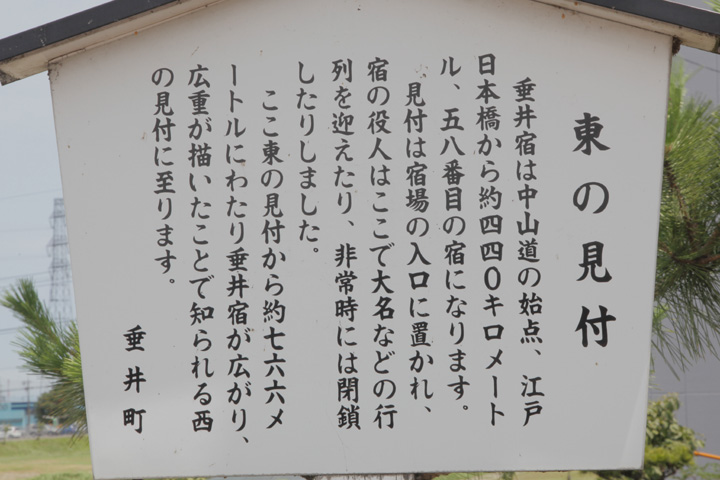 東の見付
垂井宿は中山道の始点、江戸
日本橋から約四四〇キロメート
ル、五八番目の宿になります。
見付は宿場の入口に置かれ、
宿の役人はここで大名などの行
列を迎えたり、非常時には閉鎖
したりしました。
ここ東の見付から約七六六メ
ートルにわたり垂井宿が広がり、
広重が描いたことで知られる西
の見付に至ります。
垂井町